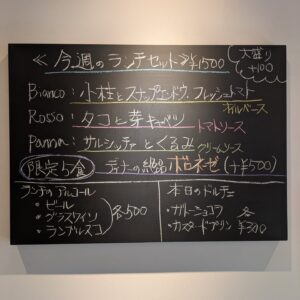 ≪今週のランチセット≫ ¥1500
大盛り
+100
Bianco: 小柱とスナップエンドウ、フレッシュトマト
オイルベース
Rosso: タコと芽キャベツ
トマトソース
Panna: サルシッチャとくるみ
クリームソース
限定5食 ディナーの絶品 ボロネーゼ (+¥500)
ランチのアルコール
・ビール
・グラスワイン
・ランブルスコ
各500
本日のドルチェ
・ガトーショコラ
・カスタードプリン
各
¥300